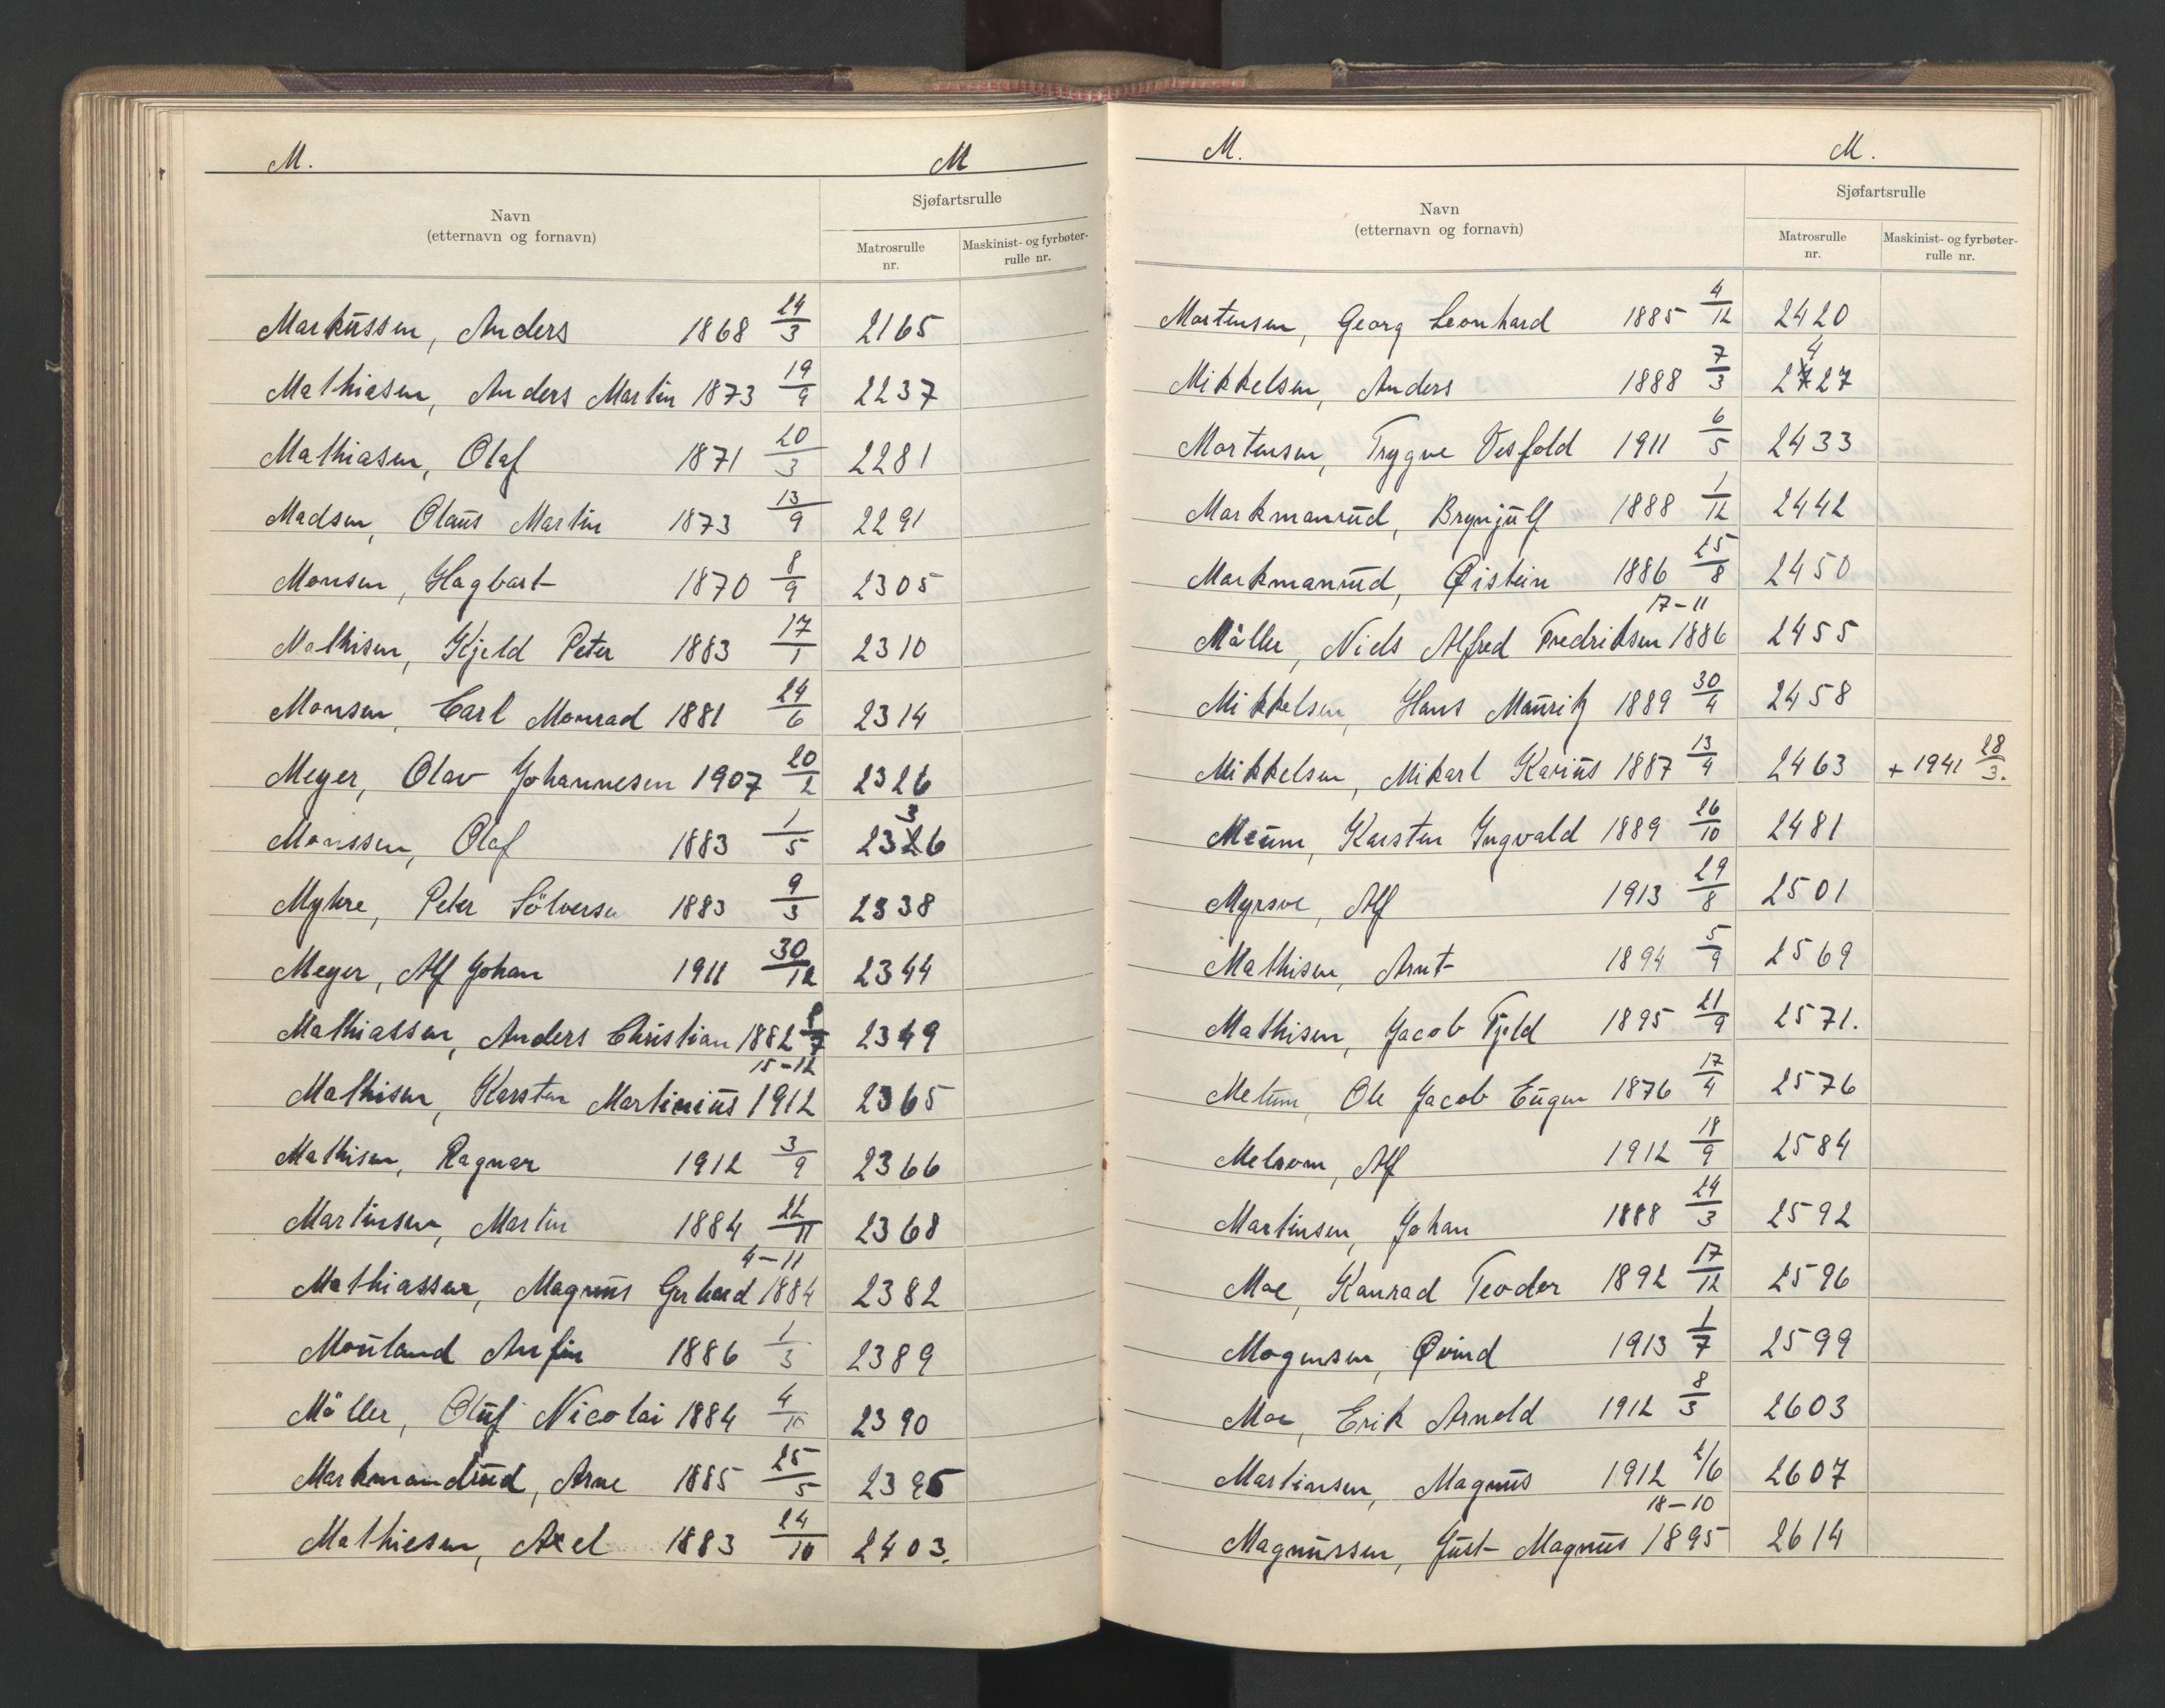 M. M
Navn
(etternavn og fornavn)
Sjøfartsrulle
Matrosrulle
nr.
Maskinist- og fyrbøter-
rulle nr.
Markussen, Anders 1868 24/3 2165
Mathiasen, Anders Martin 1873 19/9 2237
Mathiasen, Olaf 1871 20/3 2281
Madsen, Olaus Martin 1873 13/9 2291
Monsen, Hagbart 1870 8/9 2305
Mathisen, Kjeld Peter 1883 17/1 2310
Monsen, Carl Monrad 1881 24/6 2314
Meyer, Olav Johannesen 1907 20/2 2326
Monssen, Olaf 1883 1/5 2336
Myhre, Peter Sölversen 1883 9/3 2338
Meyer, Alf Johan 1911 30/12 2344
Mathiassen, Anders Christian 1882 8/7 2349
15-12
Mathisen, Karsten Martinius 1912 2365
Mathisen, Ragnar 1912 3/9 2366
Martinsen, Martin 1884 22/11 2368
4-11
Mathiassen, Magnus Gerhard 1884 2382
Mouland Anfin 1886 1/3 2389
Möller, Oluf Nicolai 1884 4/10 2390
Markmandrud, Arne 1885 25/5 2395
Mathiesen, Axel 1883 24/10 2403.
M. M.
Navn
(etternavn og fornavn)
Sjøfartsrulle
Matrosrulle
nr.
Maskinist- og fyrbøter-
rulle nr.
Mortensen, Georg Leonhard 1885 4/12 2420
Mikkelsen, Anders 1888 7/3 2427
Mortensen, Trygve Vesfold 1911 6/5 2433
Markmanrud, Brynjulf 1888 1/12 2442
Markmanrud, Øistein 1886 25/8 2450
17-11
Möller, Niels Alfred Fredriksen 1886 2455
Mikkelsen, Hans Mauritz 1889 30/4 2458
Mikkelsen, Mikael Karius 1887 13/9 2463 + 1941 28/3.
Meum, Karsten Ingvald 1889 26/10 2481
Myrsve, Alf 1913 29/8 2501
Mathisen, Arnt 1894 5/9 2569
Mathisen, Jacob Fjeld 1895 21/9 2571.
Metum, Ole Jacob Eugen 1876 17/4 2576
Melsom, Alf 1912 18/9 2584
Martinsen, Johan 1888 24/3 2592
Moe, Konrad Teoder 1892 17/12 2596
Mogensen, Øvind 1913 1/7 2599
Moe, Erik Arnold 1912 8/3 2603
Martinsen, Magnus 1912 2/6 2607
18-10
Magnussen, Just Magnus 1895 2614